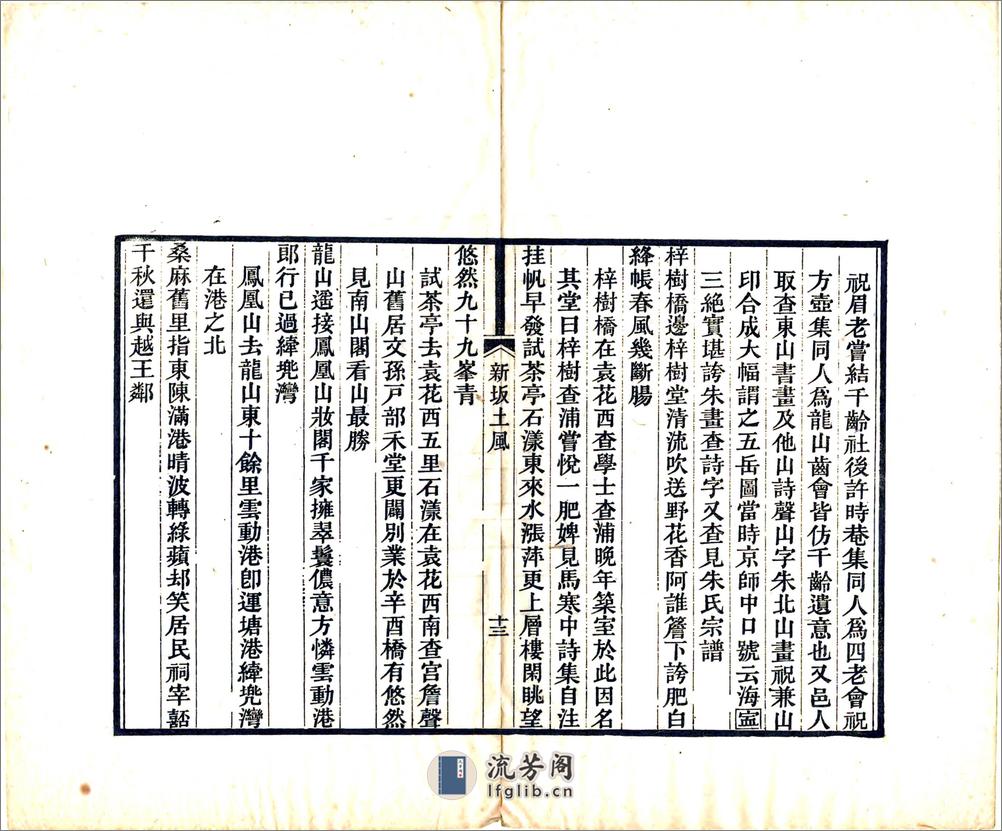 祝眉老嘗結千齡社後許時菴集同人爲四老會祝
方壺集同人爲龍山齒會皆仿千齡遺意也又邑人
取查東山書畫及他山詩聲山字朱北山畫祝兼山
印合成大幅謂之五岳圖當時京師中口號云海寍
三絕實堪誇朱畫查詩字又查見朱氏宗譜
梓樹橋邊梓樹堂清流吹送野花香阿誰簷下誇肥白
絳帳春風幾斷腸
梓樹橋在袁花西查學士查浦晚年築室於此因名
其堂曰梓樹查浦嘗悅一肥婢見馬寒中詩集自注
挂帆早發試茶亭石漾東來水漲萍更上層樓閑眺望
新坂土風
十三
悠然九十九峯青
試茶亭去袁花西五里石漾在袁花西南查宮詹聲
山舊居文孫戸部禾堂更闢別業於辛酉橋有悠然
見南山閣看山最勝
龍山遙接鳳凰山妝閣千家擁翠鬟儂意方憐雲動港
郎行已過緯兠灣
鳳凰山去龍山東十餘里雲動港卽運塘港緯兠灣
在港之北
桑麻舊里指東陳滿港晴波轉綠蘋却笑居民祠宰嚭
千秋還與越王鄰
流芳阁
lfglib.cn